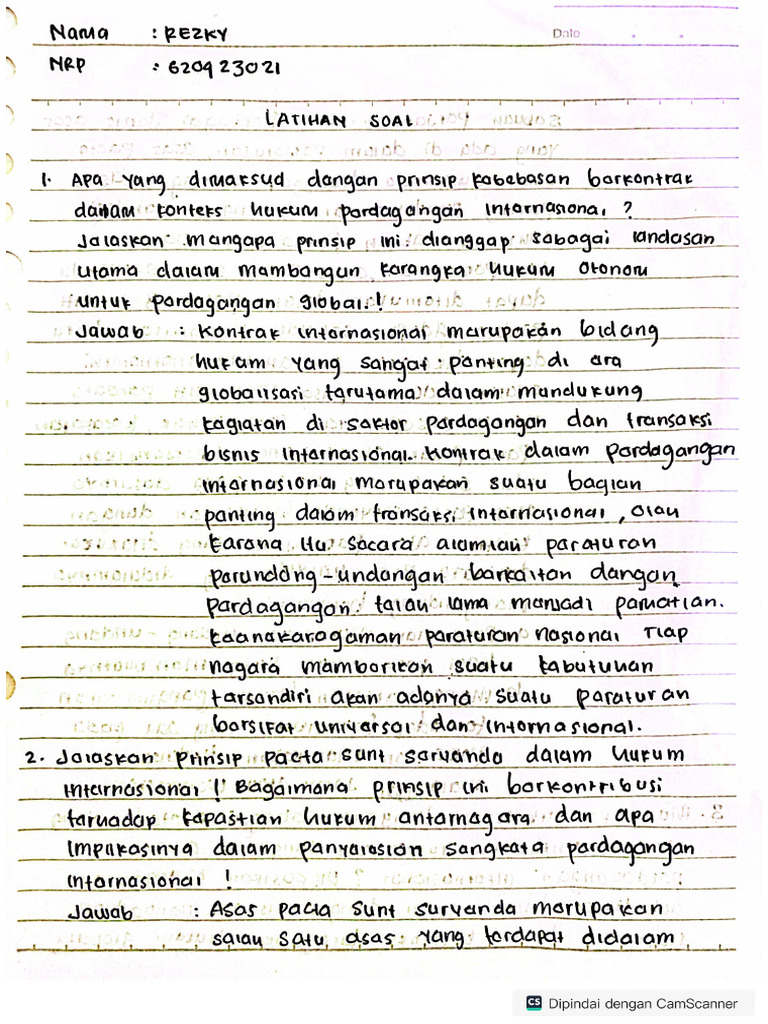 Nama : REZKY
Date
NRP : 620923021
LATIHAN SOAL
1. Apa yang dimaksud dengan prinsip kebebasan berkontrak
dalam konteks hukum perdagangan internasional ?
Jelaskan mengapa prinsip ini dianggap sebagai landasan
utama dalam membangun kerangka hukum otonom
untuk perdagangan global !
Jawab : Kontrak internasional merupakan bidang
hukum yang sangat penting di era
globalisasi terutama dalam mendukung
kegiatan di sektor perdagangan dan transaksi
bisnis internasional. Kontrak dalam perdagangan
internasional merupakan suatu bagian
penting dalam transaksi internasional, oleh
karena itu secara alamiah peraturan
perundang-undangan berkaitan dengan
perdagangan telah lama menjadi perhatian.
Keanekaragaman peraturan nasional tiap
negara memberikan suatu kebutuhan
tersendiri akan adanya suatu peraturan
bersifat universal dan internasional.
2. Jelaskan prinsip pacta sunt servanda dalam hukum
internasional ! Bagaimana prinsip ini berkontribusi
terhadap kepastian hukum antarnegara dan apa
implikasinya dalam penyelesian sengketa perdagangan
internasional !
Jawab : Asas pacta sunt survanda merupakan
salah satu asas yang terdapat didalam
CS Dipindai dengan CamScanner